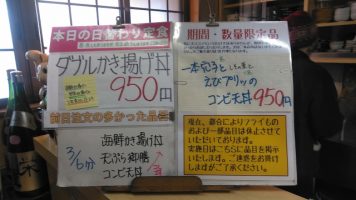 本日の日替わり定食
ダブルかき揚げ丼
950円
前日注文の多かった品
3/6分
海鮮かき揚げ丼
天ぷら御膳
コンビ天丼
期間・数量限定品
一本穴子と
えびプリッの
コンビ天丼 950円
現在、都合によりフライもの
および一部品目は休止させて
いただいております。
実施日はこちらに品目を掲示
いたします。ご迷惑をお掛け
しますがご了承ください。